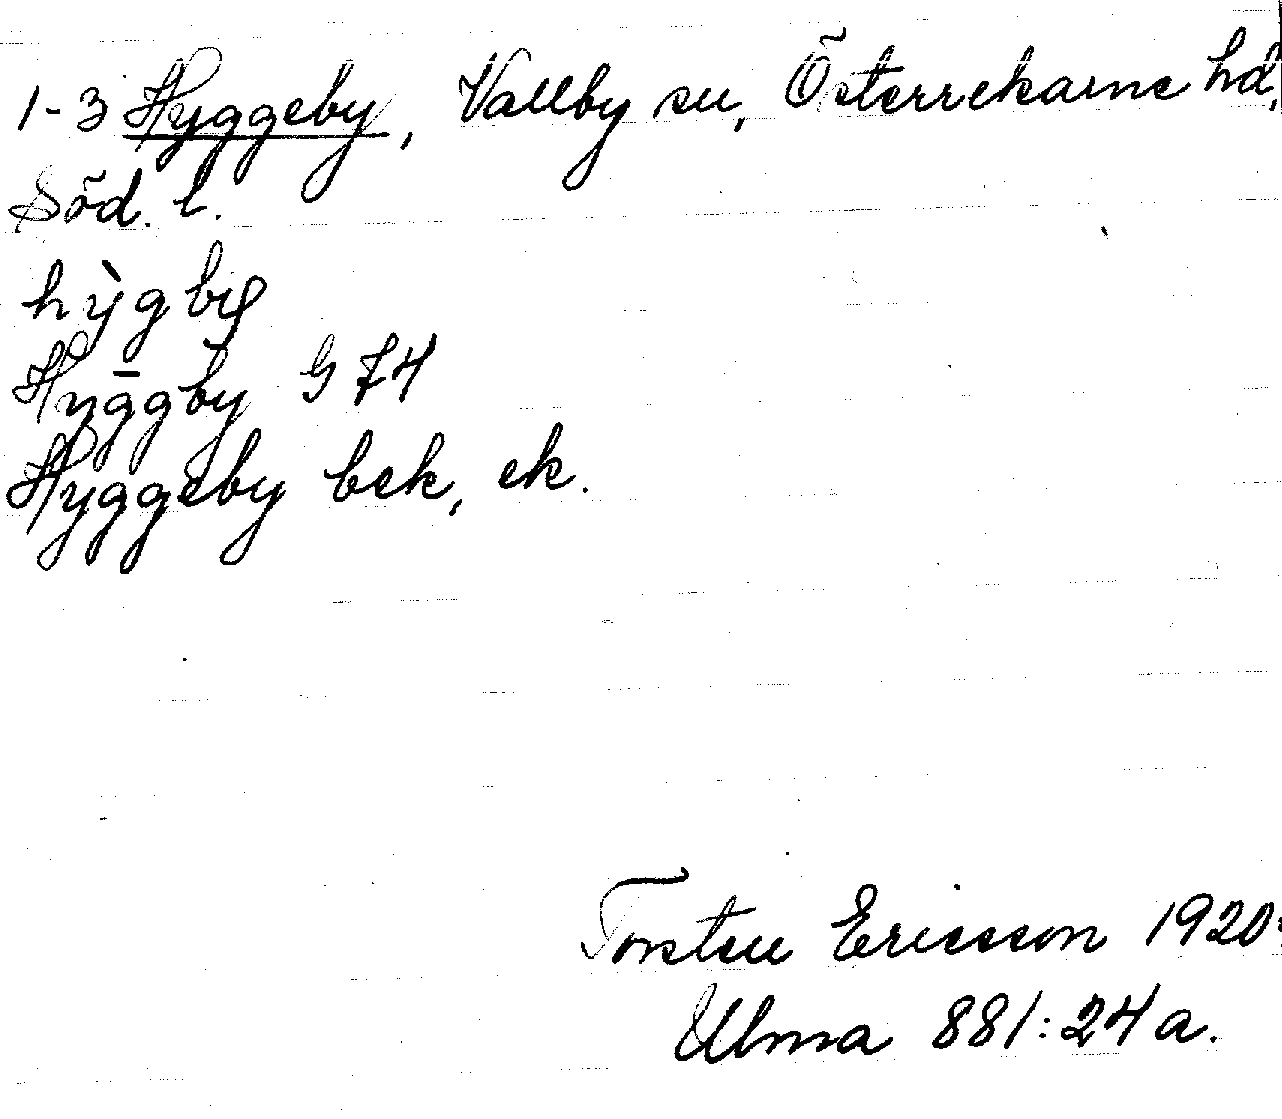 1-3 Hyggeby, Vallby sn, Österrekarne hd,
Söd. l.
hỳgby
Hyg̅gby G 74
Hyggeby bek, ek.
Torsten Ericsson 1920
Ulma 881:24a.